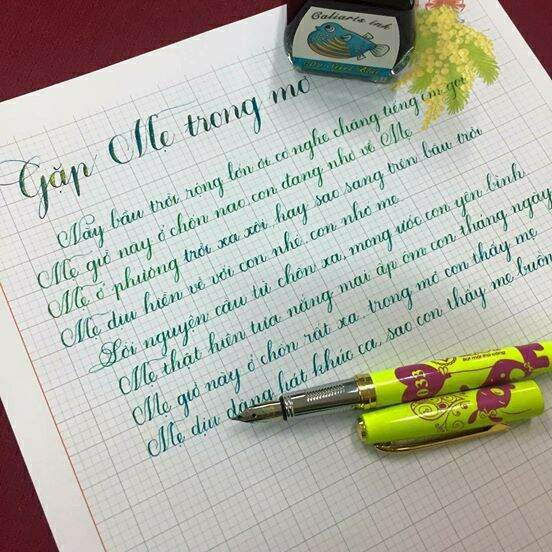 Caliarts ink
Gặp Mẹ trong mơ
Này bầu trời rộng lớn ơi, có nghe chăng tiếng em gọi
Mẹ giờ này ở chốn nao, con đang nhớ về Mẹ
Mẹ ở phương trời xa xôi, hay sao sáng trên bầu trời
Mẹ dịu hiền về với con nhé, con nhớ mẹ
Lời nguyện cầu từ chốn xa, mong ước con yên bình
Mẹ thật hiền tựa nắng mai, ấp ôm con tháng ngày
Mẹ giờ này ở chốn rất xa, trong mơ con thấy mẹ
Mẹ dịu dàng hát khúc ca, sao con thấy mẹ buồn